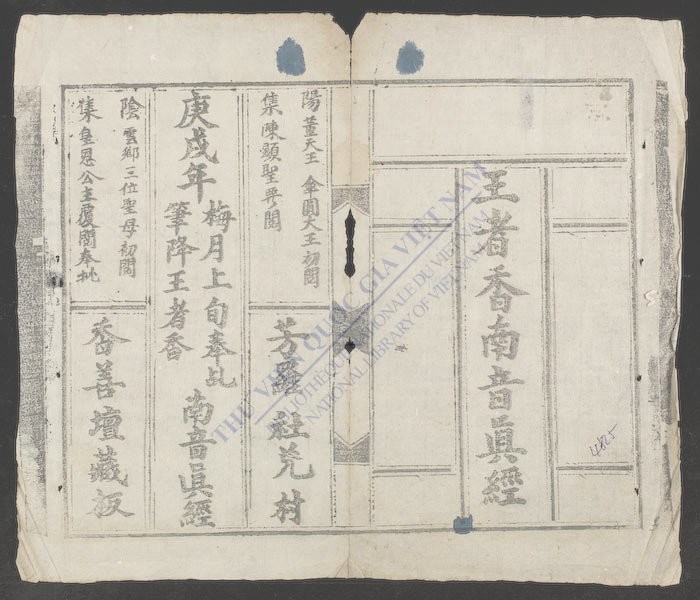 王者香南音眞經
陽 董天王 傘圓大王初閱
集 陳顯聖 閱
芳 社 村
庚戌年 梅月上旬奉
筆降王者香
南音眞經
陰 雲鄉三位聖母初閱
集 皇恩公主覆閱奉批
香善壇藏板
THƯ VIỆN QUỐC GIA VIỆT NAM
BIBLIOTHÈQUE NATIONALE DU VIETNAM
NATIONAL LIBRARY OF VIETNAM
4825